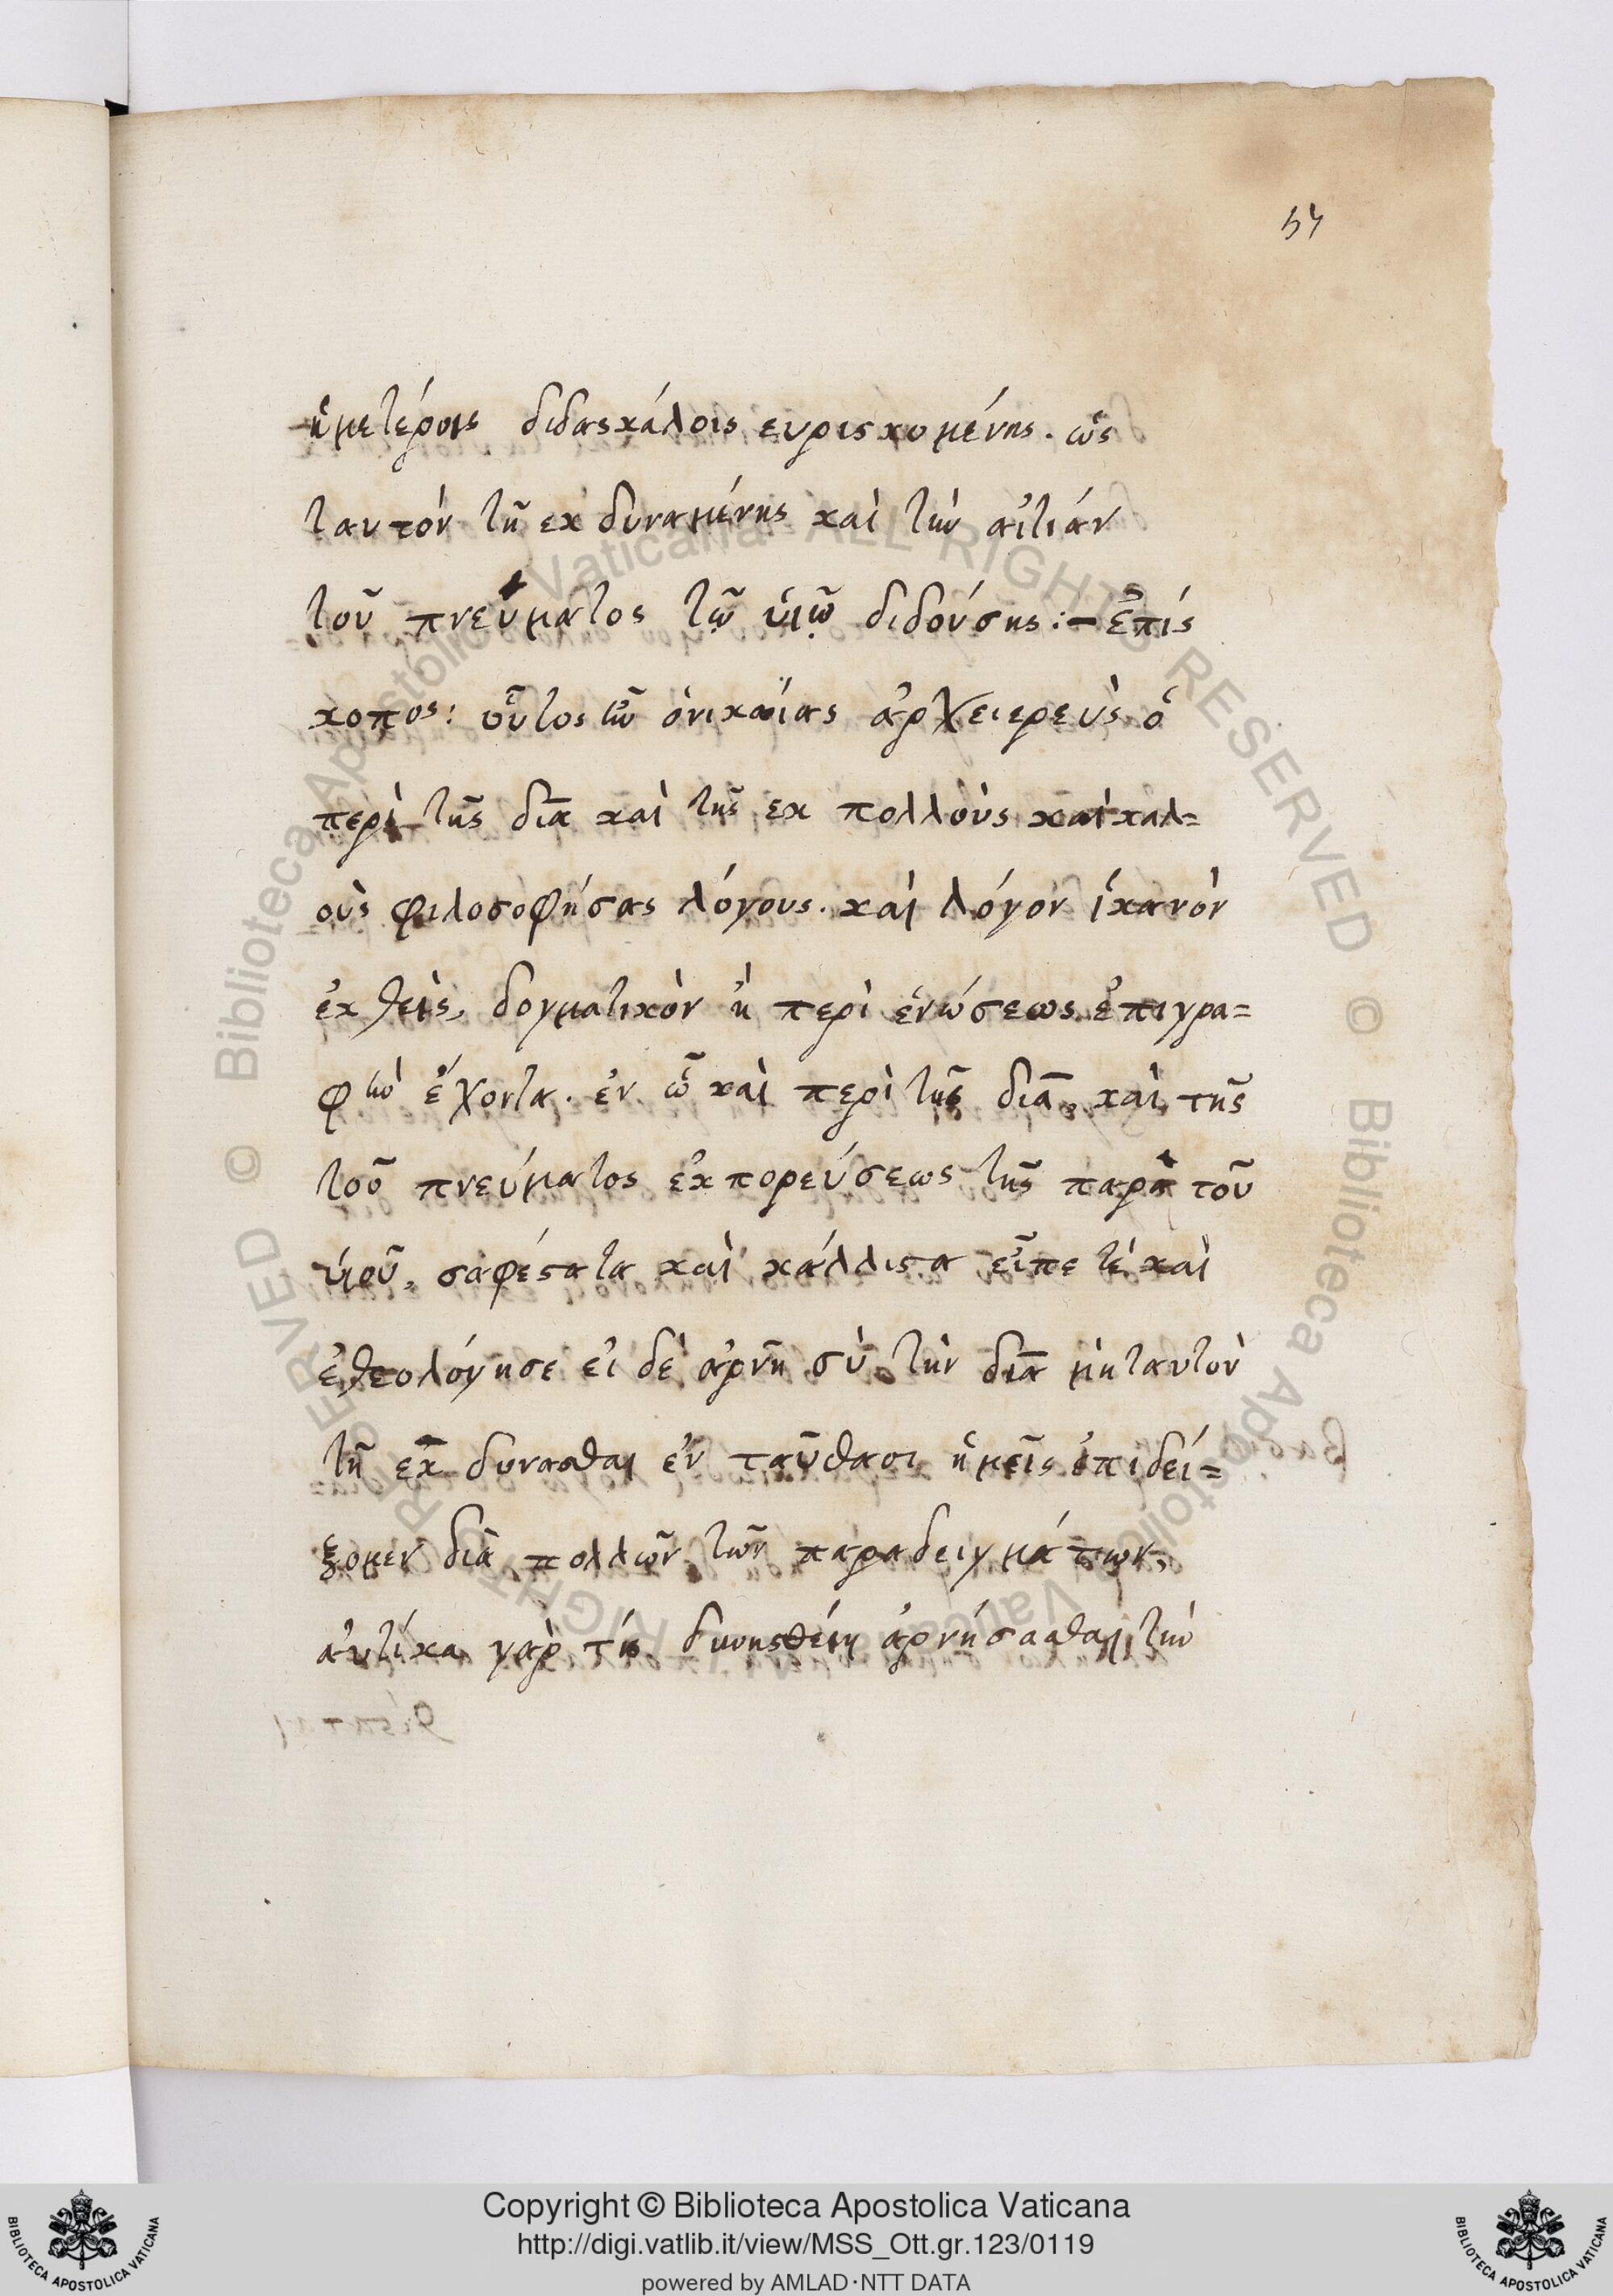 54
ἡμετέροις διδασκάλοις ευρισκομένης. ὡς
ταυτόν τῆ εκ δυναμένης καὶ τὴν αἰτιάν
τοῦ πνεύματος τῶ υἱῶ διδούσης:- Ἐπίσ
κοπος: οὗτος ἦν ὁ νικαίας ἀρχειερεὺς ὁ
περὶ τῆς διὰ καὶ τῆς εκ πολλοὺς καὶ καλ=
οὺς φιλοσοφήσας λόγους. καὶ λόγον ἱκανὸν
ἐκθεὶς, δογματικὸν ἢ περὶ ἑνώσεως ἐπιγρα=
φὴν ἔχοντα. ἐν ᾧ καὶ περὶ τῆς διὰ, καὶ τῆς
τοῦ πνεύματος ἐκπορεύσεως τῆς παρὰ τοῦ
υἱοῦ, σαφέστατα καὶ κάλλιστα εἶπε τέ καὶ
ἐθεολόγησε εἰ δὲ ἀρνῆ σὺ τὴν διὰ μὴ ταυτὸν
τῆ εκ δυνασθαι ἐν ταῦθασι ἡμεῖς ἐπιδεί=
ξομεν διὰ πολλῶν τῶν παραδειγμάτων,
αὐτίκα γὰρ τίς δυνησθείη ἀρνήσασθαι τὴν
Copyright © Biblioteca Apostolica Vaticana
http://digi.vatlib.it/view/MSS_Ott.gr.123/0119
powered by AMLAD·NTT DATA
BIBLIOTECA APOSTOLICA VATICANA
BIBLIOTECA APOSTOLICA VATICANA